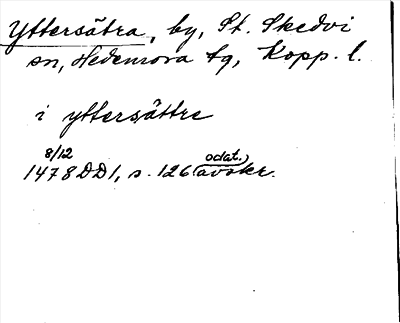 Yttersätra, by, St. Skedvi
sn, Hedemora tg, Kopp. l.
i yttersättre
8/12 odat.)
1478 DD1, s. 126 avskr.